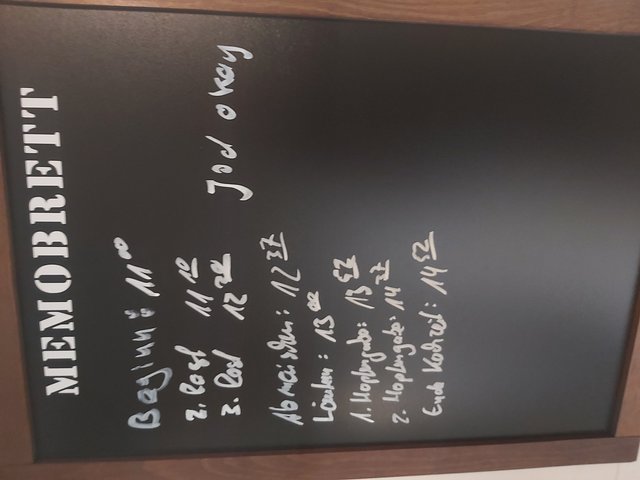 MEMOBRETT
Beginn: 11 00
2. Rast 11 10
3. Rast 12 22
Jod okay
Abmaischen: 12 37
Läutern: 13 00
1. Hopfengabe: 13 52
2. Hopfengabe: 14 37
Ende Kochzeit: 14 52